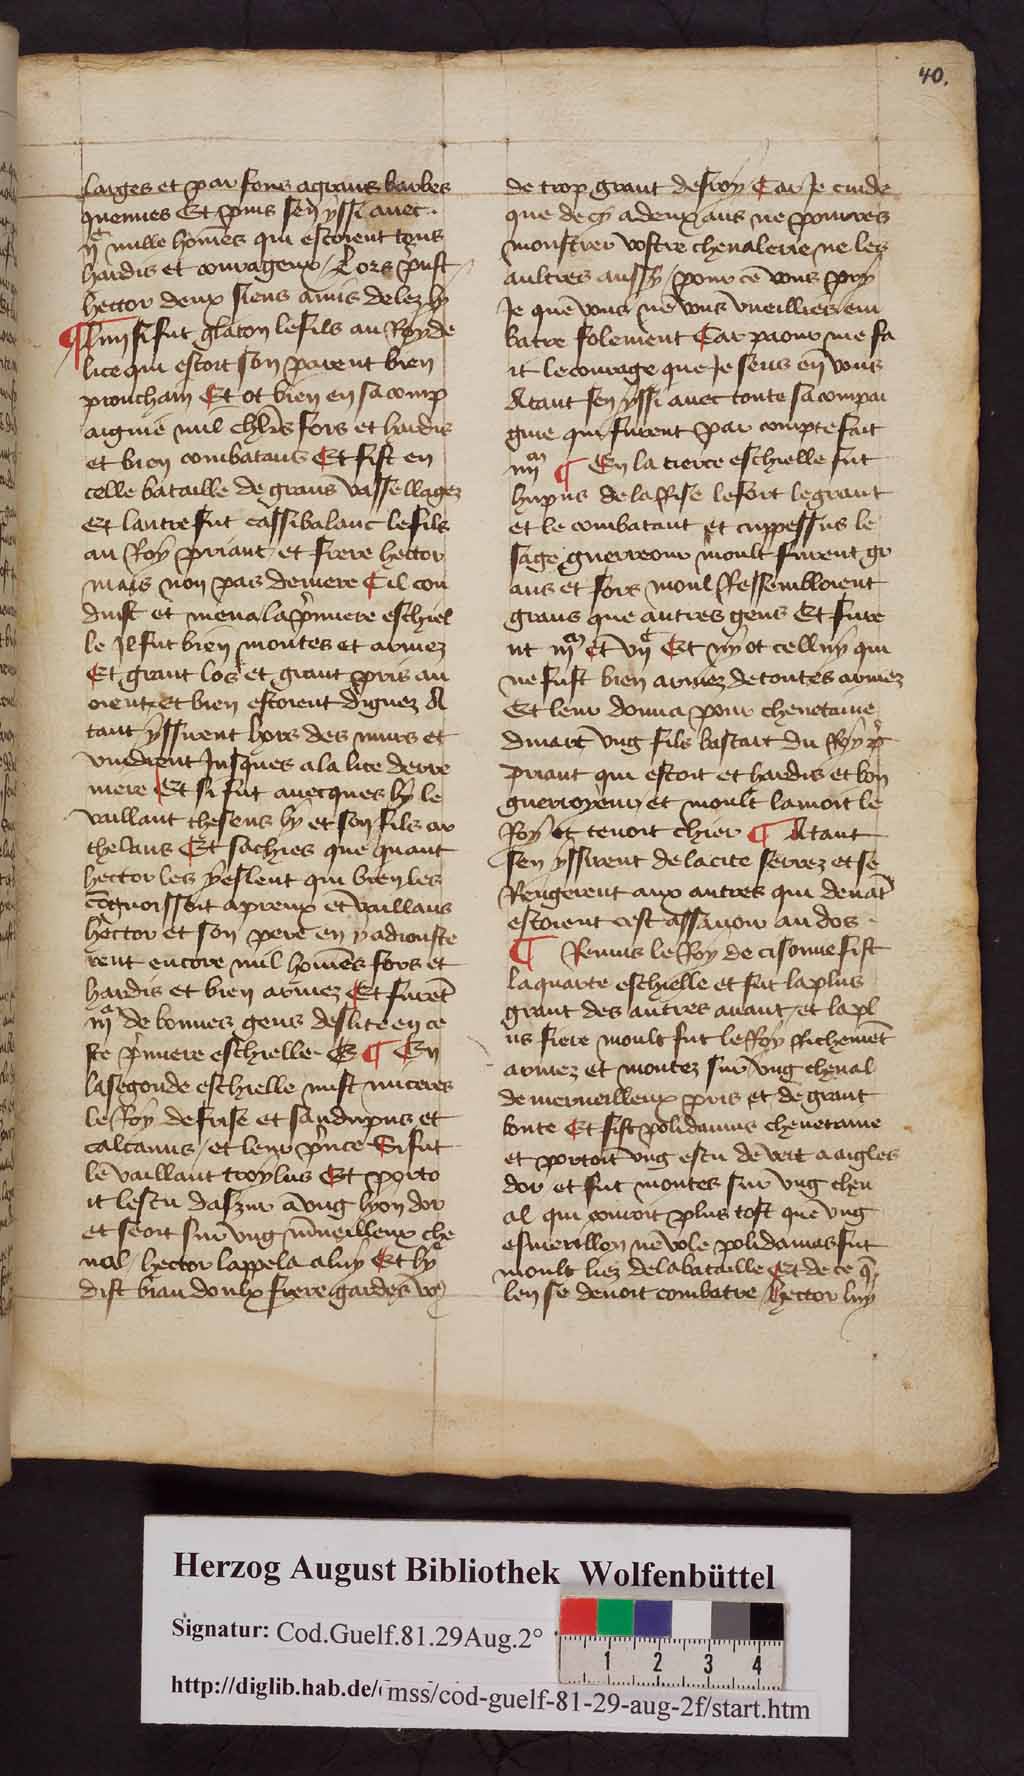 40.
larges et par fons a grans barbes
quennes Et puis sen yssi auec
ijᶜ mille hom̄es qui estoient tous
hardis et courageux / Lors prist
hector deux siens amis delez ly
¶ Lun si fut glaton le fils au Roy de
lice qui estoit son parent bien
prouchain Et ot bien en sa comp
aignie mil chl̄rs fors et hardis
et bien combatans Et fist en
celle bataille de grans vassellagez
Et lautre fut cassibalant le fils
au Roy priant et frere hector
mais non pas de mere Cil con
duist et mena la p̄miere eschiel
le Il fut bien montes et armez
Et grant los et grant pris au
oient et bien estoient dignez A
tant yssirent hors des murs et
vindrent Jusques a la lice derre
niere Et si fut auecques ly le
vaillant theseus ly et son fils ar
thelaus Et sachies que quant
hector les y eslent qui bien les
cōgnoissoit a preux et vaillans
hector et son pere en y adiouste
rent encore mil hom̄es fors et
hardis et bien armez Et furēt
iijᵐ de bonnes gens deslite en ce
ste p̄miere eschielle Et ¶ En
la segonde eschielle mist miceres
le Roy de frise et sandrpus et
calcanus / et leur p̄nce Si fut
le vaillant troylus Et porto
it lescu daszur a vng lyon dor
et seoit sur vng m̄ueilleux che
ual / hector lappela a luy Et ly
dist biau doulx frere gardes vo᷒
de trop grant desroy Car Je cuide
que de cy a deux ans ne pourres
monstrer vostre cheualerie ne les
aultres aussy / pour ce vous pry
Je que vous ne vous vueilliez em
batre folement Car paour me fa
it le courage que Je sens en vous
Atant sen yssi auec toute sa compai
gnie qui furent par compte fait
iiijᵐ ¶ En la tierce eschielle fut
hupus de lassise le fort le grant
et le combatant et cuppessus le
sage guerreour moult furent gr
ans et fors moul ressembloient
grans que autres gens Et fure
nt iijᵐ et vijᶜ Et ny ot celluy qui
ne fust bien armez de toutes armez
Et leur donna pour cheuetaine
dinart vng fils bastart du Roy p̄
priant qui estoit et hardis et bon
guerroyeur et moult lamoit le
Roy et tenoit chier ¶ Atant
sen yssirent de la cite serrez et se
Rengerent aux autres qui deuāt
estoient cest assauoir au dos
¶ Remus le Roy de cisonne fist
la quarte eschielle et fut la plus
grant des autres auant / et la pl
us fiere moult fut le Roy Richemēt
armez et montez sur vng cheual
de merueilleux pris et de grant
bonte Et fist polidamus cheuetaine
et portoit vng escu de vert a aigles
dor et fut montes sur vng cheu
al qui couroit plus tost que vng
esmerillon ne vole polidamas fut
moult liez de la bataille Et de ce q̄
len se deuoit combatre / hector luy
Herzog August Bibliothek Wolfenbüttel
Signatur: Cod.Guelf.81.29Aug.2°
1 2 3 4
http://diglib.hab.de/mss/cod-guelf-81-29-aug-2f/start.htm